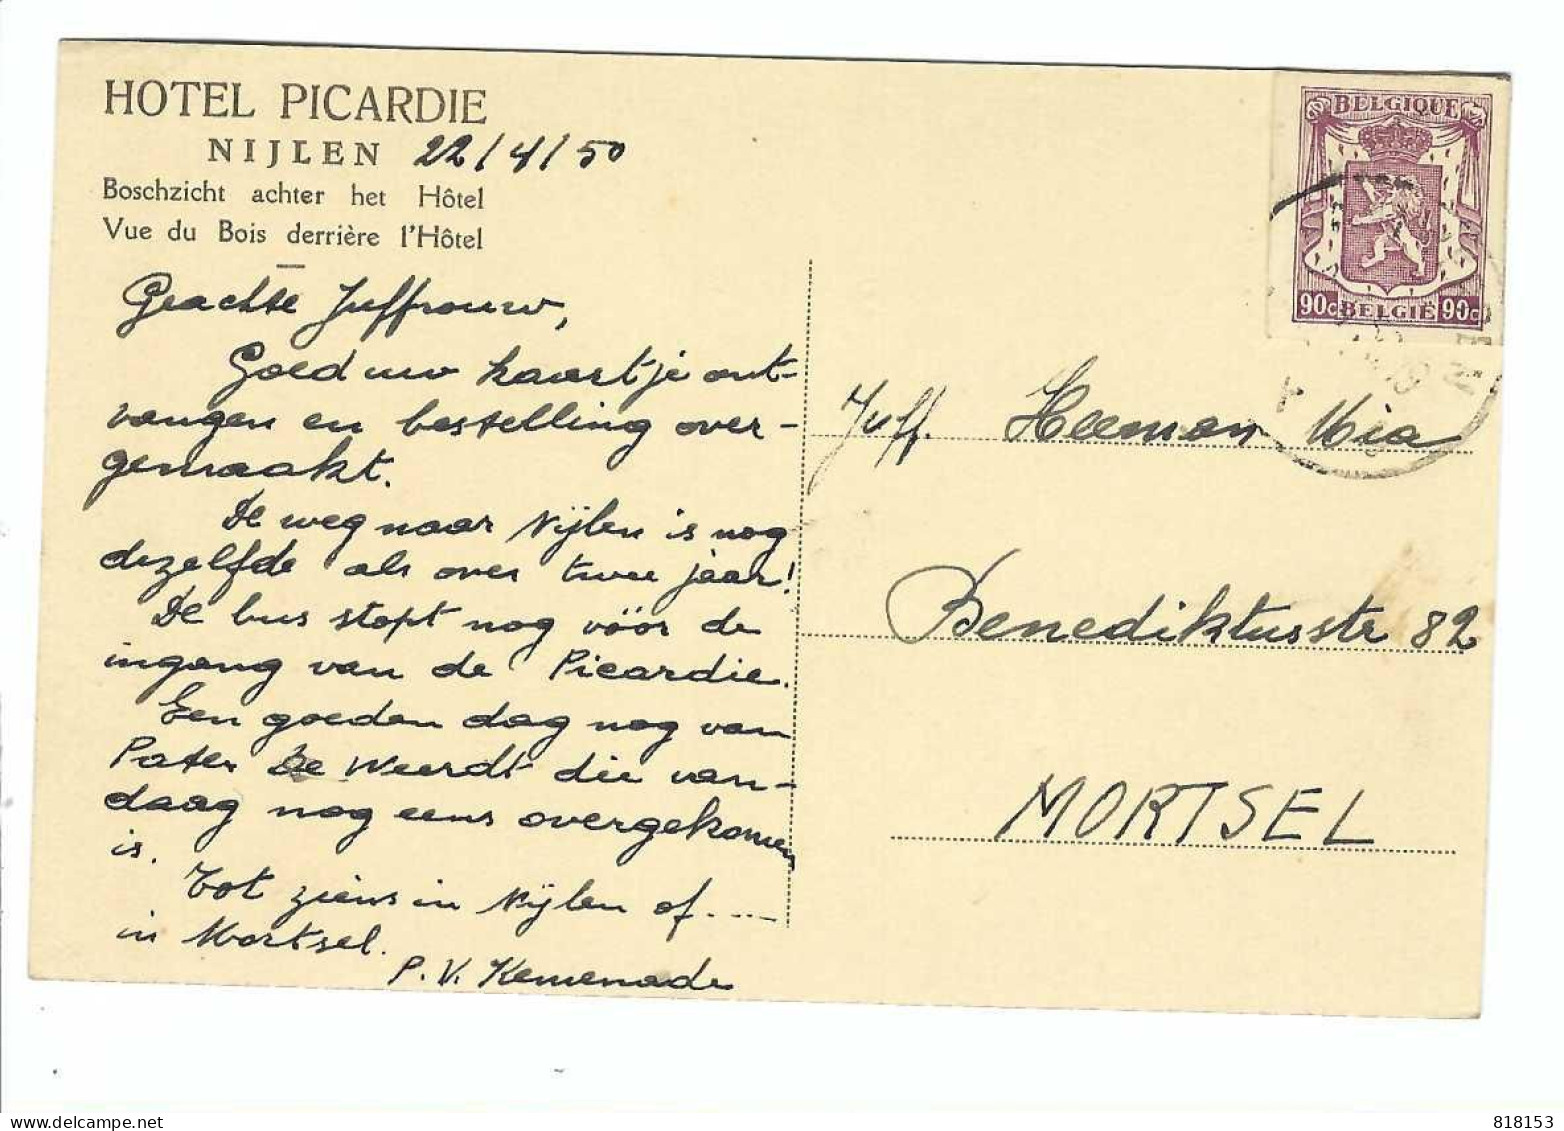 HOTEL PICARDIE
NIJLEN 22/4/50
Boschzicht achter het Hôtel
Vue du Bois derrière l'Hôtel
Geachte Juffrouw,
Goed uw kaartje ont-
vangen en bestelling over-
gemaakt.
De weg naar Nijlen is nog
dezelfde als over twee jaar!
De bus stopt nog vóór de
ingang van de Picardie.
Een goeden dag nog van
Pater De Weerdt die van-
daag nog eens overgekomen
is.
Tot ziens in Nijlen of ....
in Mortsel.
P. V. Kemenade
BELGIQUE
90c BELGIË 90c
Juff. Heeman Mia
Benediktusstr 82
MORTSEL
818153